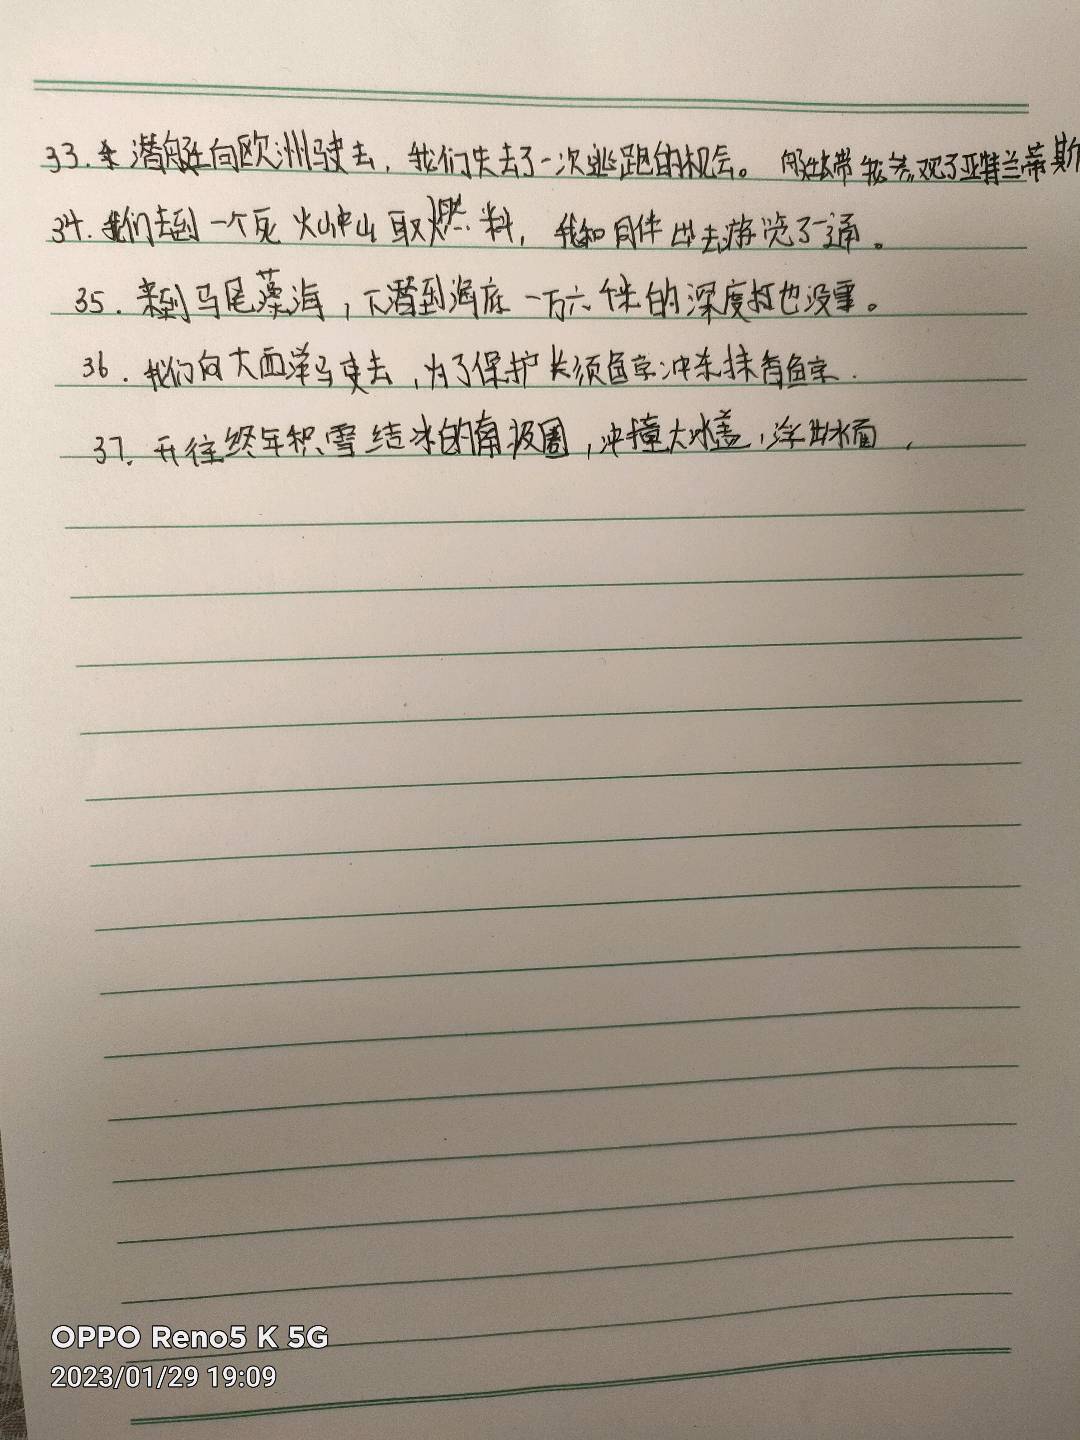 33. 潜艇向欧洲驶去,我们失去了一次逃跑的机会。 船长带我参观了亚特兰蒂斯
34. 我们去到一个死火山中山取燃料,我和同伴出去游览了一通。
35. 来到马尾藻海,下潜到海底一万六千米的深度拉也没事。
36. 我们向大西洋驶去,为了保护长须鱼京冲杀抹香鱼京.
37. 开往终年积雪结冰的南极圈,冲撞大冰盖,浮出水面,
OPPO Reno5 K 5G
2023/01/29 19:09